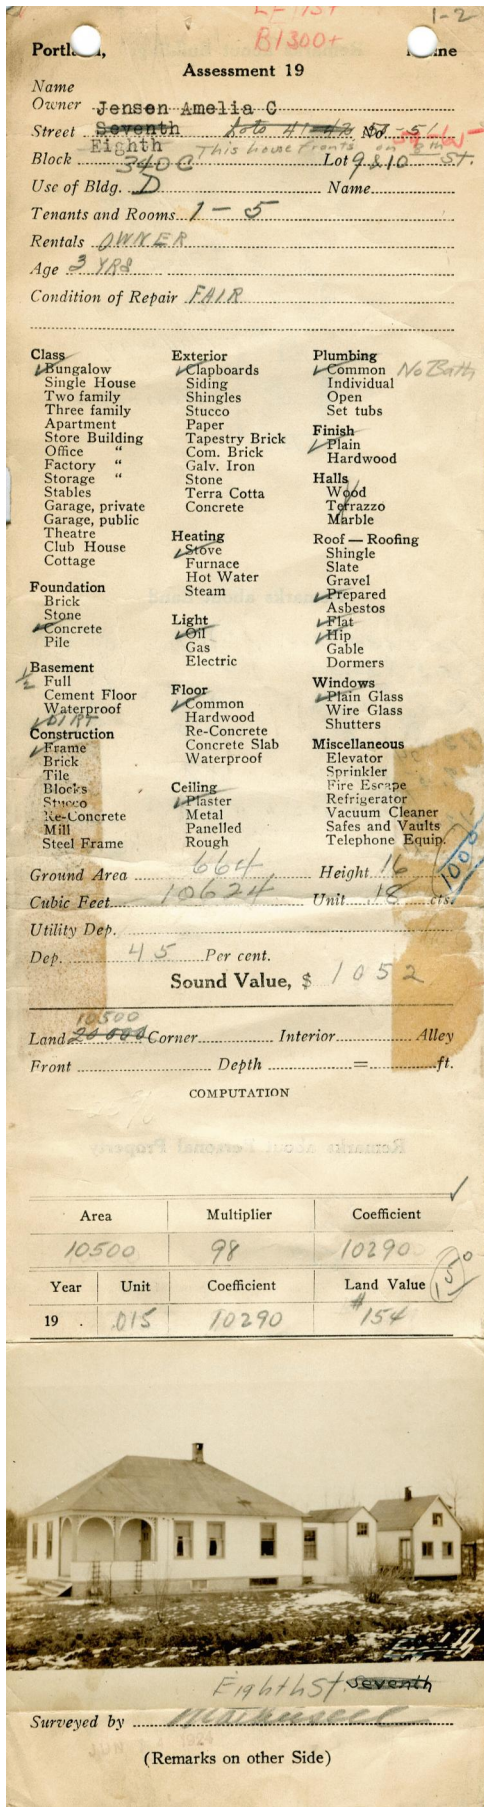 1-2
B1300+
Portland, Maine
Assessment 19
Name
Owner Jensen Amelia C
Street Seventh Lots 41 No.
Eighth This house fronts on 8th St.
Block 340C Lot 9 & 10
Use of Bldg. D Name
Tenants and Rooms 1-5
Rentals OWNER
Age 3 YRS
Condition of Repair FAIR
Class
Bungalow
Single House
Two family
Three family
Apartment
Store Building
Office "
Factory "
Storage "
Stables
Garage, private
Garage, public
Theatre
Club House
Cottage
Foundation
Brick
Stone
Concrete
Pile
Basement
1/2 Full
Cement Floor
Waterproof
DIRT
Construction
Frame
Brick
Tile
Blocks
Stucco
Re-Concrete
Mill
Steel Frame
Exterior
Clapboards
Siding
Shingles
Stucco
Paper
Tapestry Brick
Com. Brick
Galv. Iron
Stone
Terra Cotta
Concrete
Heating
Stove
Furnace
Hot Water
Steam
Light
Oil
Gas
Electric
Floor
Common
Hardwood
Re-Concrete
Concrete Slab
Waterproof
Ceiling
Plaster
Metal
Panelled
Rough
Plumbing
Common No Bath
Individual
Open
Set tubs
Finish
Plain
Hardwood
Halls
Wood
Terrazzo
Marble
Roof — Roofing
Shingle
Slate
Gravel
Prepared
Asbestos
Flat
Hip
Gable
Dormers
Windows
Plain Glass
Wire Glass
Shutters
Miscellaneous
Elevator
Sprinkler
Fire Escape
Refrigerator
Vacuum Cleaner
Safes and Vaults
Telephone Equip.
1000
Ground Area 664 Height 16
Cubic Feet 10624 Unit 18 cts.
Utility Dep.
Dep. 45 Per cent.
Sound Value, $ 1052
10500
Land 20000 Corner Interior Alley
Front Depth = ft.
COMPUTATION
Area Multiplier Coefficient
10500 98 10290
Year Unit Coefficient Land Value 150
19 . .015 10290 $154
Eighth St. Seventh
Surveyed by
(Remarks on other Side)